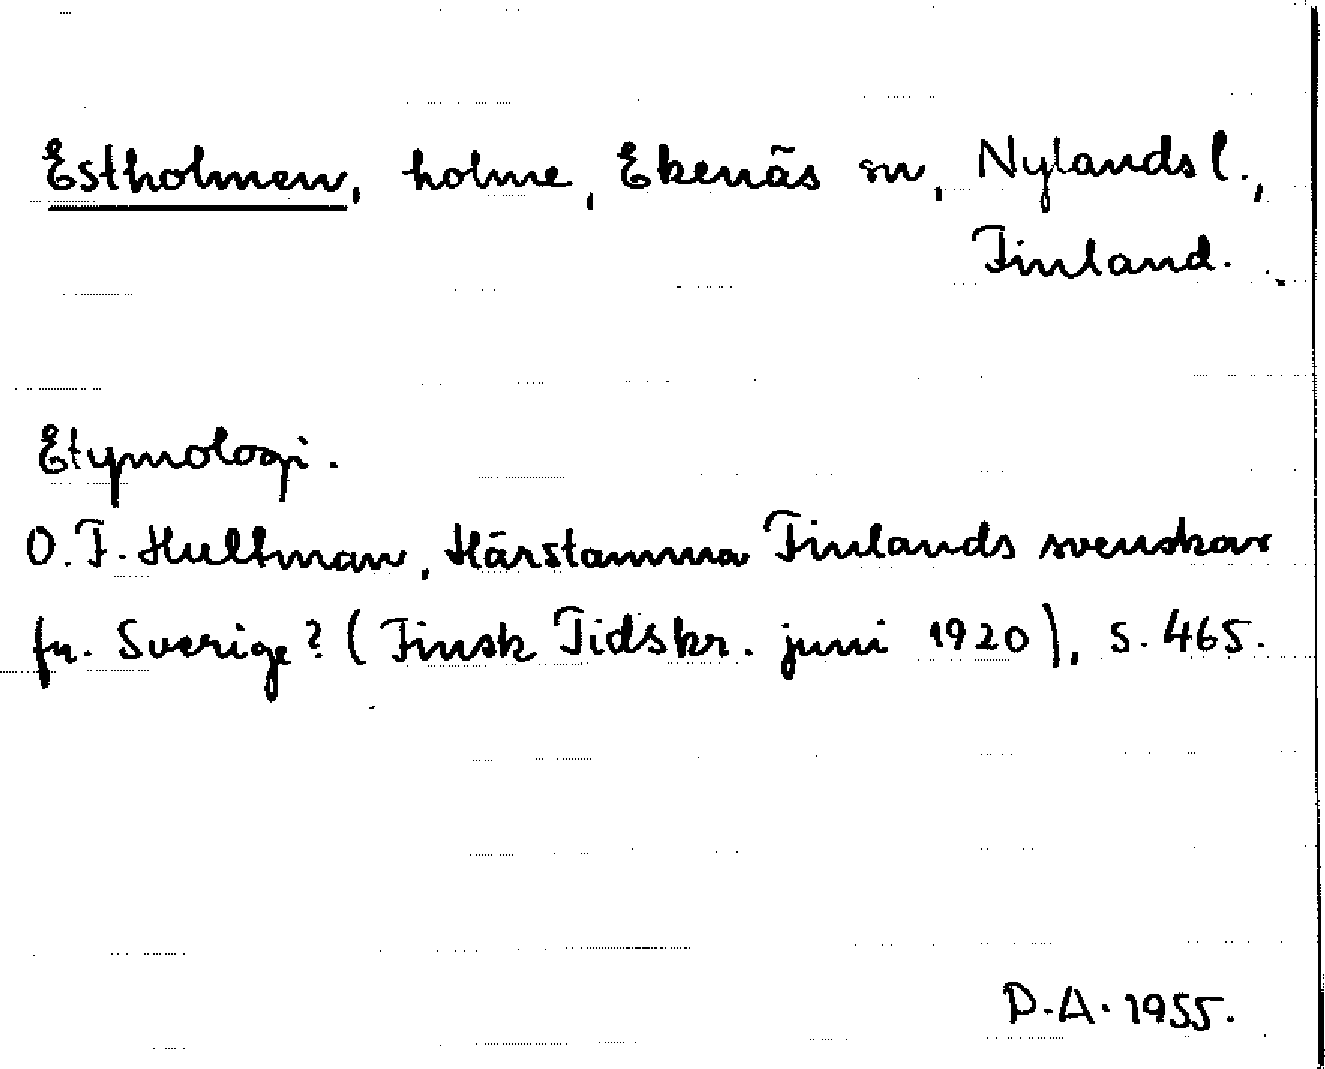 Estholmen, holme, Ekenäs sn, Nylands l.,
Finland.
Etymologi.
O. F. Hultman, Härstamma Finlands svenskar
fr. Sverige? (Finsk Tidskr. juni 1920), s. 465.
D.A. 1955.